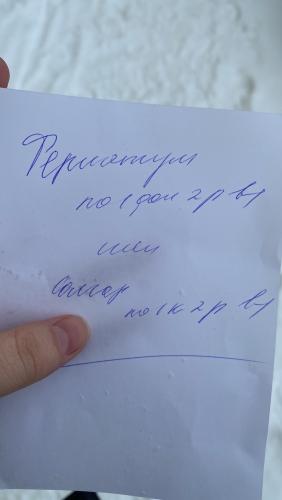 Ферлатум
по 1 фл 2 р в д
или
Солгар
по 1 к 2 р в д